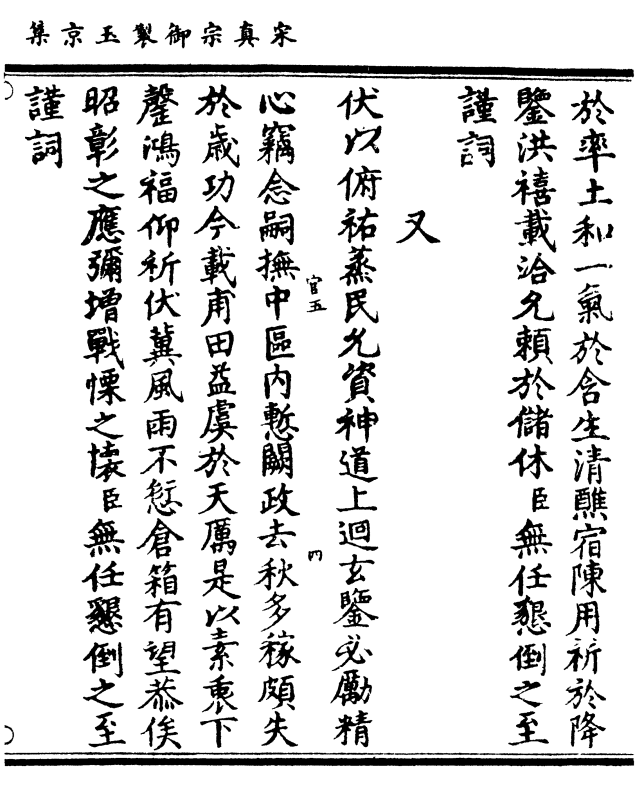 宋真宗御製玉京集
於率土和一氣於含生清醮宿陳用祈於降
鑒洪禧載洽允賴於儲休臣無任懇倒之至
謹詞
又
伏以俯祐蒸民允資神道上迴玄鑒必勵精
心竊念嗣撫中區內慙闕政去秋多稼頗失
於歲功今載甫田益虞於天厲是以素衷下
罄鴻福仰祈伏冀風雨不愆倉箱有望恭俟
昭彰之應彌增戰慄之懐臣無任懇倒之至
謹詞
官五
四